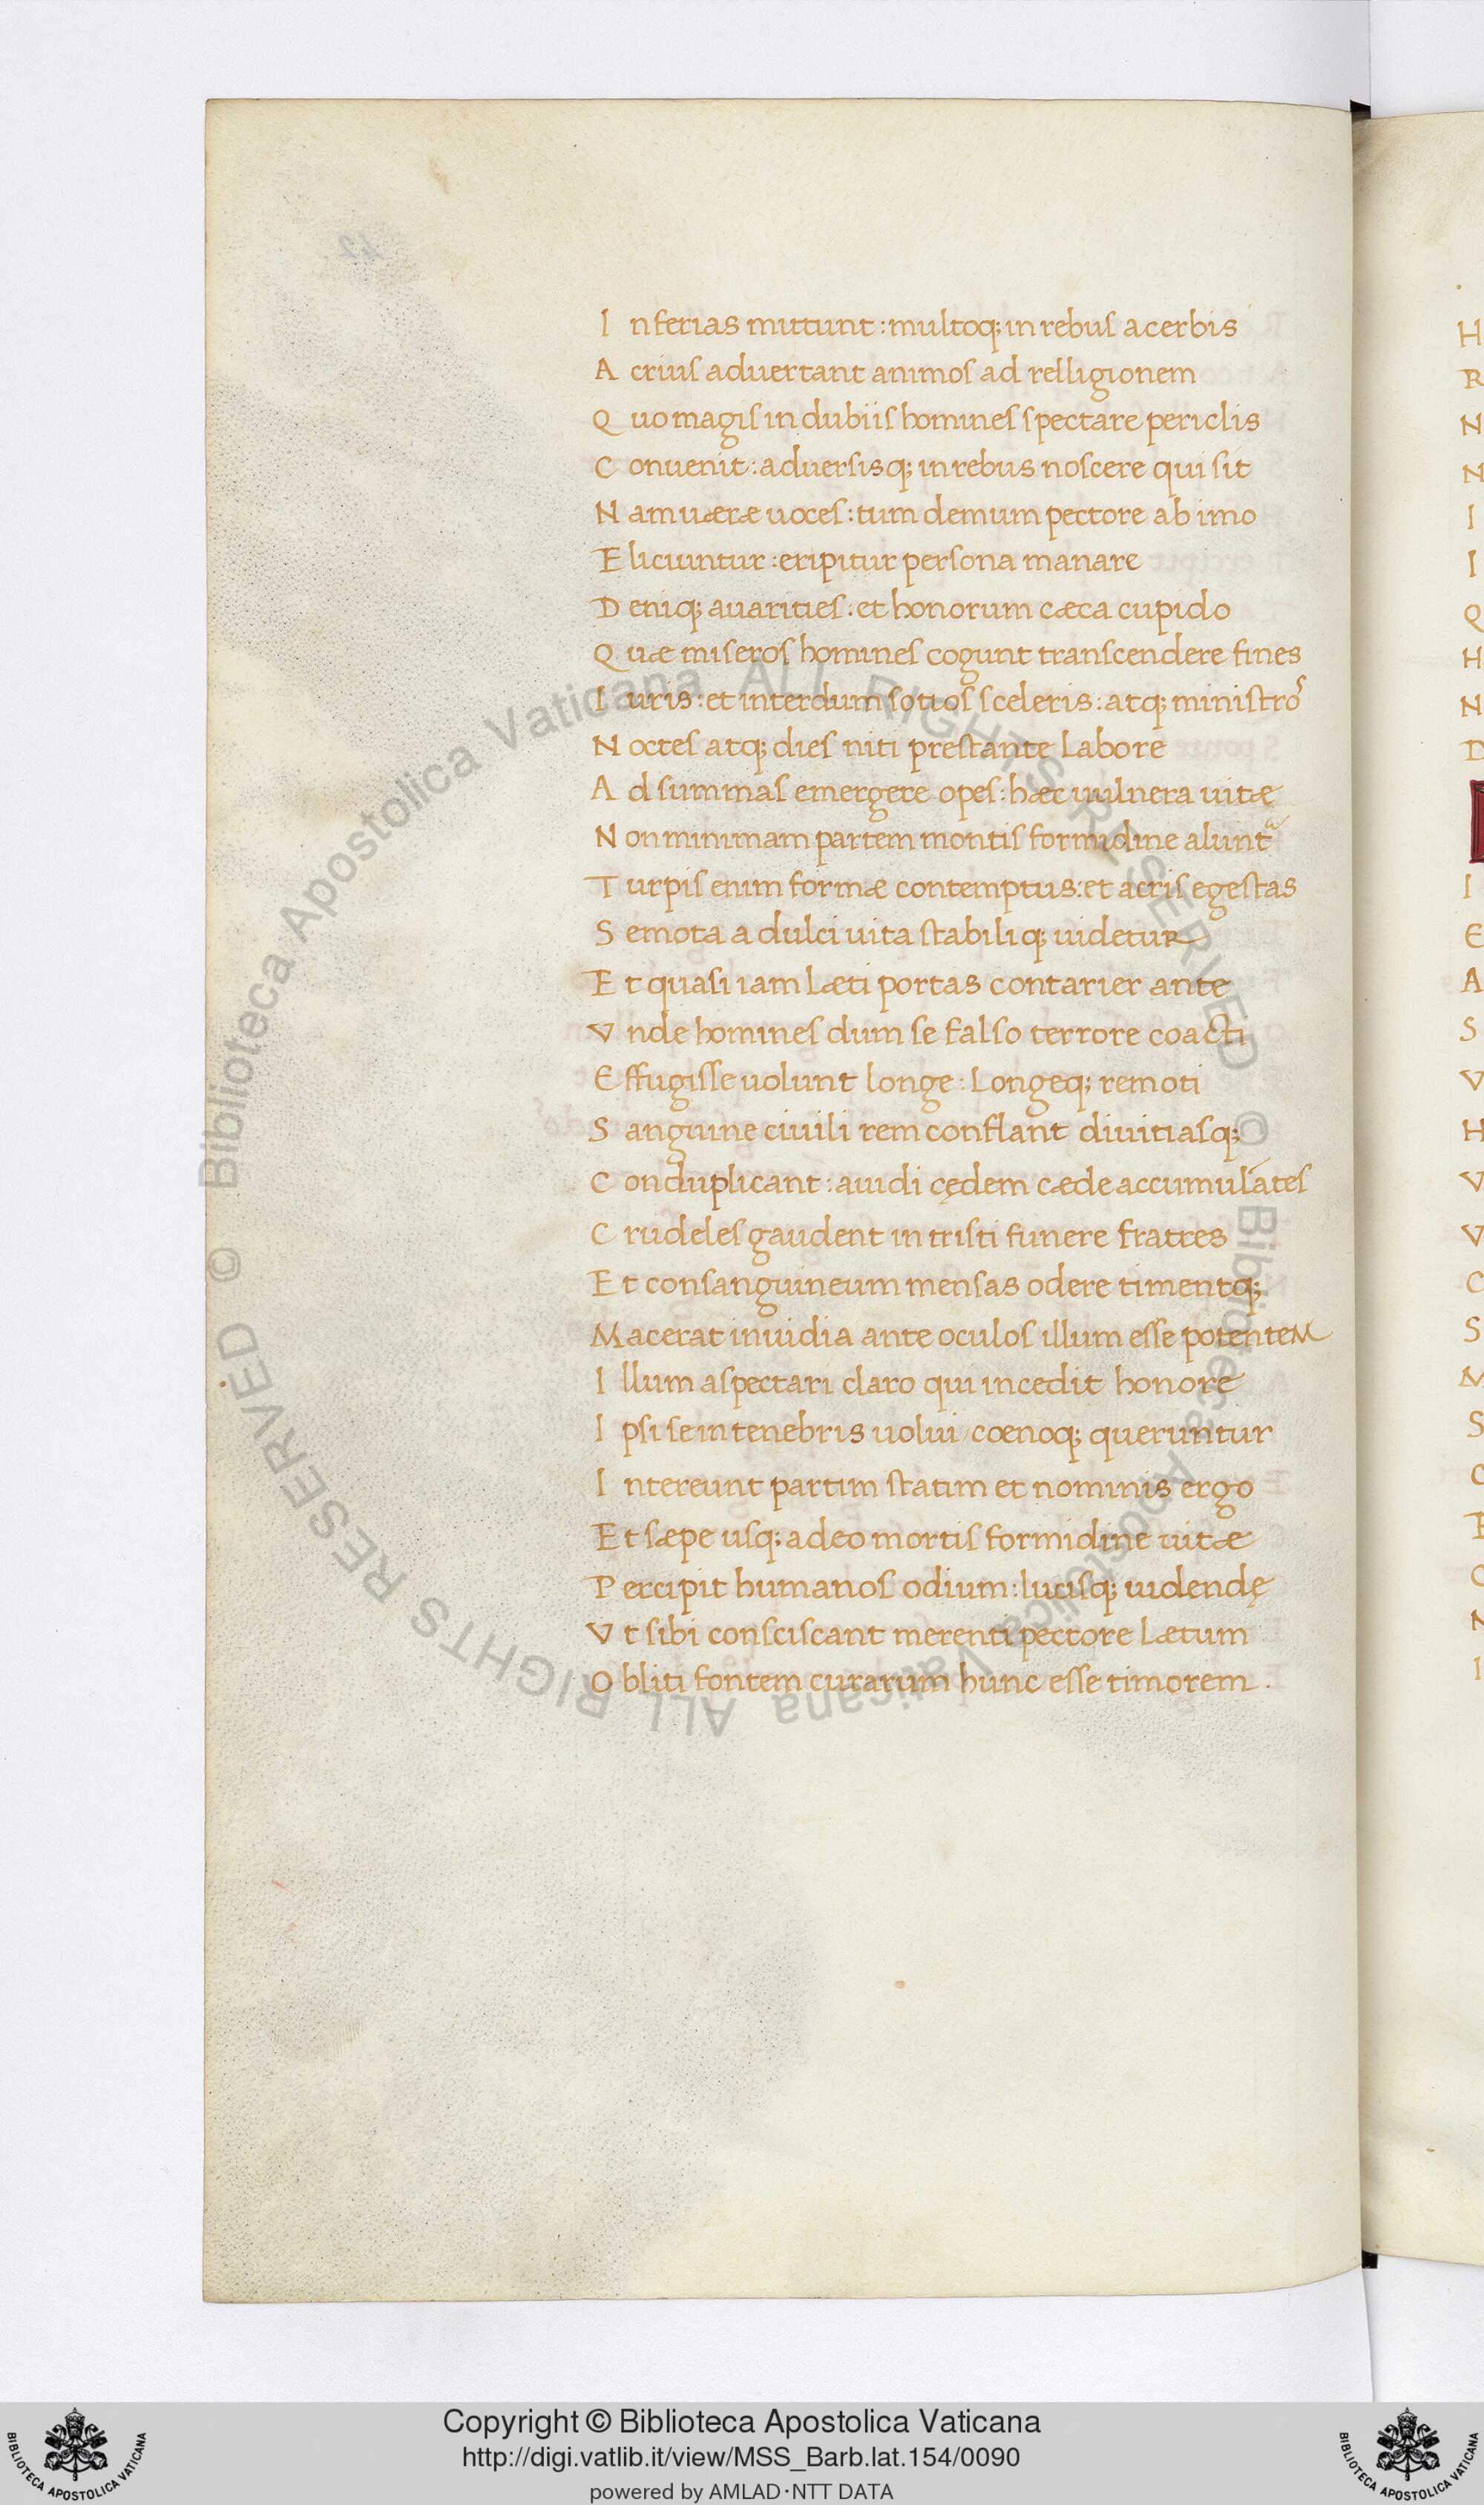 I nferias mittunt : multoq; in rebus acerbis
A crius aduertant animos ad relligionem
Q uo magis in dubiis homines spectare periclis
C onuenit : aduersisq; in rebus noscere qui sit
N am uæræ uoces : tum demum pectore ab imo
E liciuntur : eripitur persona manare
D eniq; auarities : et honorum cæca cupido
Q uæ miseros homines cogunt transcendere fines
I uris : et interdum sotios sceleris : atq; ministros
N octes atq; dies niti prestante labore
A d summas emergere opes : hæc uulnera uitæ
N on minimam partem montis formidine alunt
T urpis enim formæ contemptus : et acris egestas
S emota a dulci uita stabiliq; uidetur
E t quasi iam læti portas contarier ante
V nde homines dum se falso terrore coacti
E ffugisse uolunt longe : longeq; remoti
S anguine ciuili rem conflant diuitiasq;
C onduplicant : auidi cędem cæde accumulātes
C rudeles gaudent in tristi funere fratres
E t consanguineum mensas odere timentq;
M acerat inuidia ante oculos illum esse potentem
I llum aspectari claro qui incedit honore
I psi se in tenebris uolui / cœnoq; queruntur
I ntereunt partim statim et nominis ergo
E t sæpe usq; adeo mortis formidine uitæ
P ercipit humanos odium : lucisq; uidendę
V t sibi consciscant merenti pectore lætum
O bliti fontem curarum hunc esse timorem .
H
R
N
N
I
I
Q
H
N
D
I
E
A
S
V
H
V
V
C
S
M
S
C
E
C
N
I
© Biblioteca Apostolica Vaticana ALL RIGHTS RESERVED © Biblioteca Apostolica Vaticana ALL RIGHTS RESERVED
Copyright © Biblioteca Apostolica Vaticana
http://digi.vatlib.it/view/MSS_Barb.lat.154/0090
powered by AMLAD·NTT DATA
BIBLIOTECA APOSTOLICA VATICANA
BIBLIOTECA APOSTOLICA VATICANA